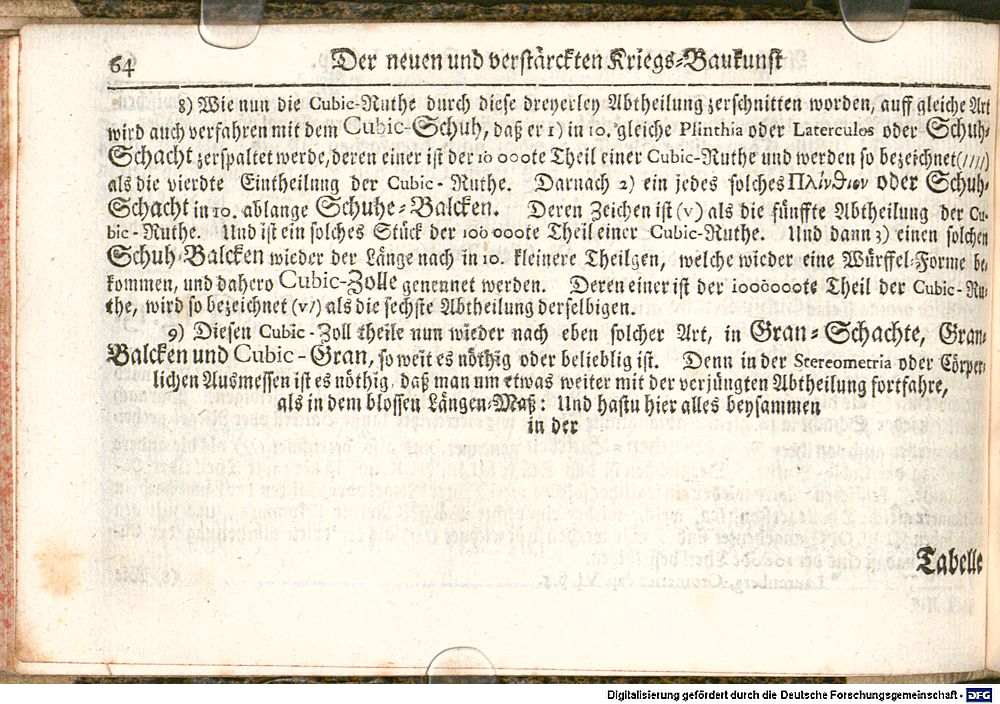 64 Der neuen und verstärckten Kriegs-Baukunst
8) Wie nun die Cubic-Ruthe durch diese dreyerley Abtheilung zerschnitten worden, auff gleiche Art
wird auch verfahren mit dem Cubic-Schuh, daß er 1) in 10. gleiche Plinthia oder Laterculos oder Schuh-
Schacht zerspaltet werde, deren einer ist der 10 000te Theil einer Cubic-Ruthe und werden so bezeichnet (////)
als die vierdte Eintheilung der Cubic-Ruthe. Darnach 2) ein jedes solches Πλίνθιον oder Schuh-
Schacht in 10. ablange Schuhe-Balcken. Deren Zeichen ist (v) als die fünffte Abtheilung der Cu-
bic-Ruthe. Und ist ein solches Stück der 100 000te Theil einer Cubic-Ruthe. Und dann 3) einen solchen
Schuh-Balcken wieder der Länge nach in 10. kleinere Theilgen, welche wieder eine Würffel-Forme be-
kommen, und dahero Cubic-Zolle genennet werden. Deren einer ist der 1000000te Theil der Cubic-Ru-
the, wird so bezeichnet (v/) als die sechste Abtheilung derselbigen.
9) Diesen Cubic-Zoll theile nun wieder nach eben solcher Art, in Gran-Schachte, Gran-
Balcken und Cubic-Gran, so weit es nöthig oder belieblig ist. Denn in der Stereometria oder Cörper-
lichen Ausmessen ist es nöthig, daß man um etwas weiter mit der verjüngten Abtheilung fortfahre,
als in dem blossen Längen-Maß: Und hastu hier alles beysammen
in der
Tabelle
Digitalisierung gefördert durch die Deutsche Forschungsgemeinschaft - DFG